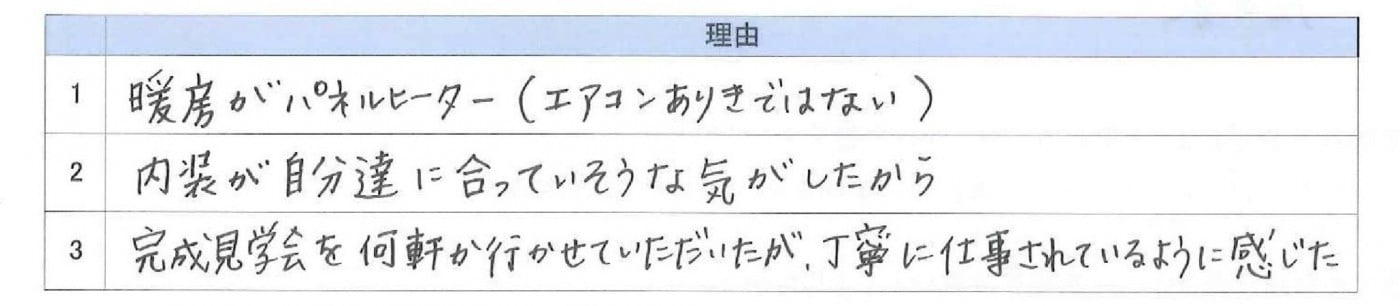 理由
1 暖房がパネルヒーター(エアコンありきではない)
2 内装が自分達に合っていそうな気がしたから
3 完成見学会を何軒か行かせていただいたが、丁寧に仕事されているように感じた